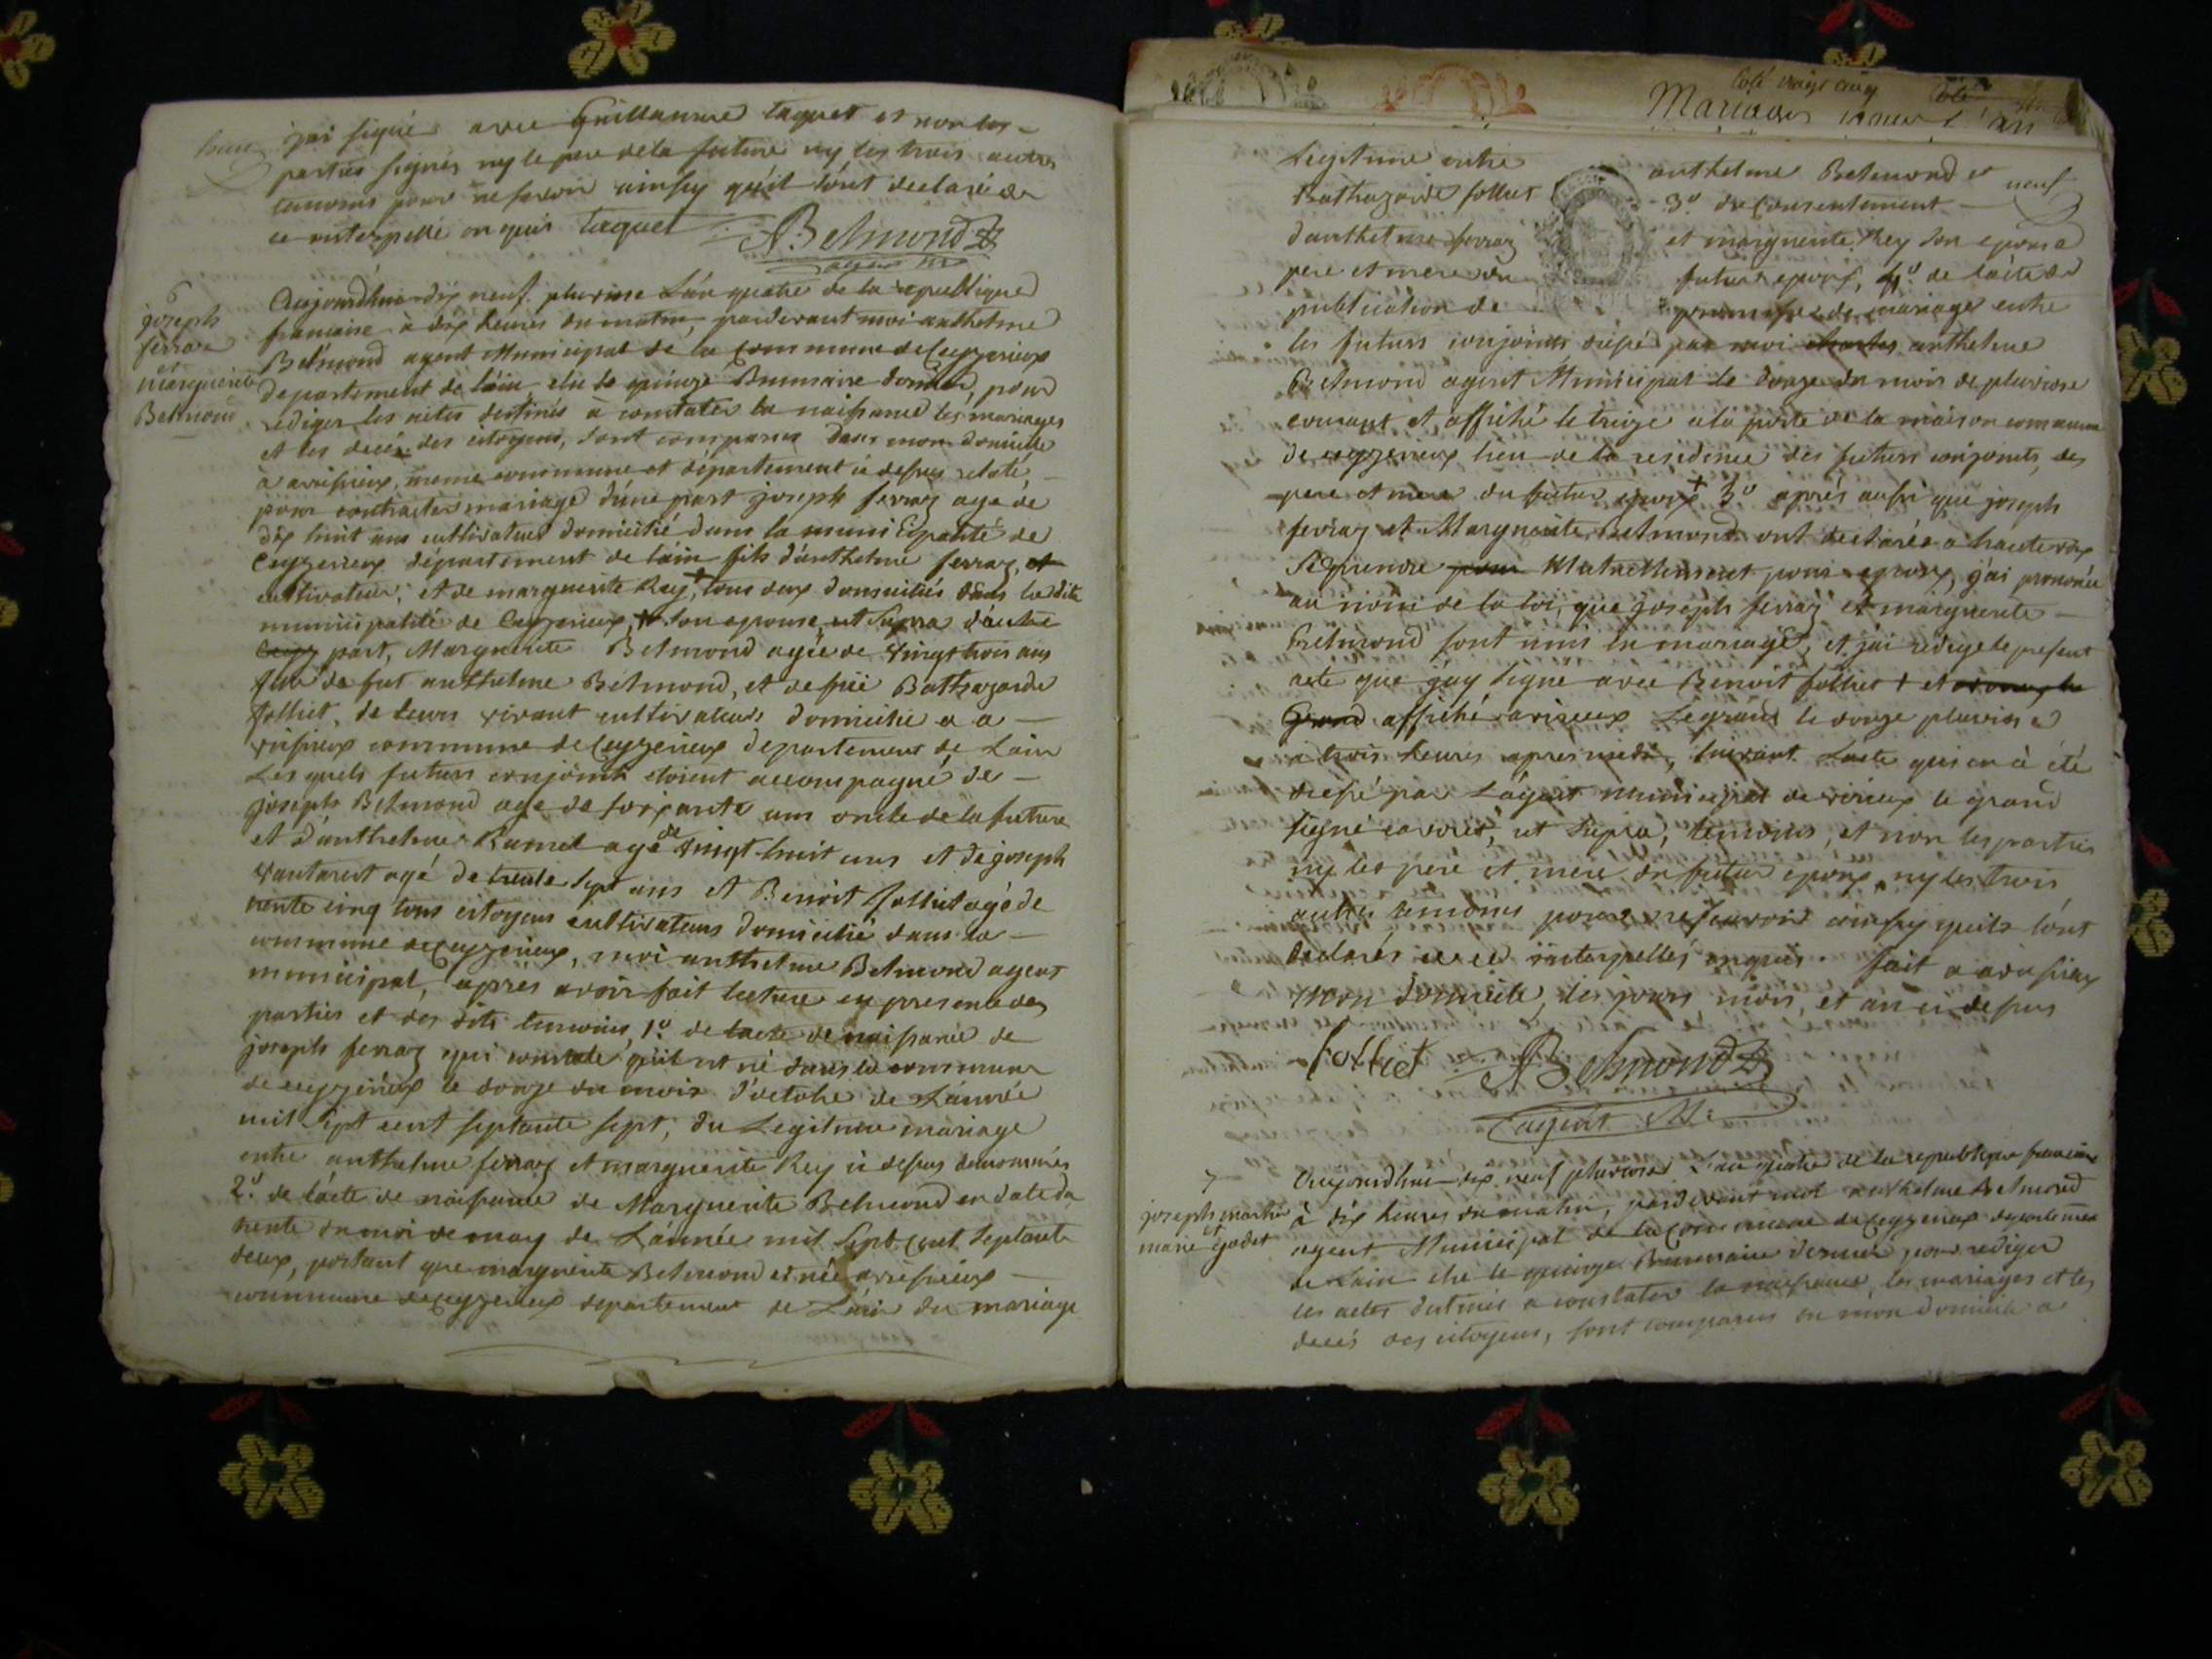 huit
jai signé avec Guillaume taquet et non les
parties signés ny le pere de la future ny les trois autres
temoins pour ne scavoir ainsy qu'il l'ont declaré de
ce interpellé enquis taquet
ABelmond
agent
6
joseph
ferraz
et
Marguerite
Belmond
Aujourdhui dix neuf pluviose L'an quatre de la republique
francaise à dix heures du matin, pardevant moi anthelme
Belmond agent Municipal de la Commune de Ceyzerieux
departement de l'ain elu le quinze Brumaire dernier, pour
rediger les actes destinés à constater la naissance les mariages
et les decés des citoyens, sont comparus dans mon domicille
à avrissieux, meme commune et département ci dessus relaté,
pour contracter mariage d'une part joseph ferraz age de
dix huit ans cultivateur domicilié dans la municipalité de
Ceyzerieux département de lain fils d'anthelme ferraz, et
cultivateur, et de marguerite Rey, tous deux domiciliés dans ladite
municipalité de Ceyzerieux, + son epouse ut supra d'autre
part, Marguerite Belmond agée de vingt trois ans
fille de fut anthelme Belmond, et de fuë Balthazarde
folliet, de leurs vivant cultivateurs domicilié a a
vrissieux commune de Ceyzerieux departement de Lain
Lesquels futurs conjoints etoient accompagné de
joseph Belmond age de soixante ans oncle de la future
et d'anthelme Ramel agé de vingt huit ans et de joseph
vantaret agé de trente sept ans et Benoit folliet agé de
trente cinq tous citoyens cultivateurs domicilié dans la
commune de Ceyzerieux, moi anthelme Belmond agent
municipal, après avoir fait lecture en presence des
parties et des dits temoins, 1º de lacte de naissance de
joseph ferraz qui constate qu'il est né dans la commune
de ceyzerieux le douze du mois d'octobre de L'année
mil sept cent septante sept, du Legitime mariage
entre anthelme ferraz et marguerite Rey ci dessus denommés
2º de l'acte de naissance de Marguerite Belmond en date du
trente du moi de may de L'année mil sept cent septante
deux, portant que marguerite Belmond est née avrissieux
commune de ceyzerieux departement de L'ain du mariage
Coté vingt cinq
Mariages
neuf
Legitime entre anthelme Belmond et
Balthazarde folliet 3º du Consentement
d'anthelme ferraz et marguerite Rey son epouse
pere et mere du futur epoux, 4º de l'acte de
publication de promesses de mariage entre
les futurs conjoints dressé par moi charles anthelme
Belmond agent Municipal le douze du mois de pluviose
courant et affiché le treize a la porte de la maison commune
de ceyzerieux lieu de la residence des futurs conjoints, des
pere et mere du futur epoux + 5º aprés aussi que joseph
ferraz et Marguerite Belmond ont declarés a haute voix
se prendre pour Mutuellement pour epoux, j'ai prononcé
au nom de la loi, que joseph ferraz et marguerite
Belmond sont unis en mariage, et j'ai redigé le present
acte que j'ay signé avec Benoit folliet + et
Grand affiché avirieux Legrand le douze pluviose
a trois heures apres midi, suivant Lacte qui en à été
dressé par L'agent municipal de virieux le grand
signé, ut supra, temoins, et non les parties
ny les pere et mere du futur epoux, ny les trois
autres temoins pour ne scavoir ainsy quils l'ont
declarés de ce interpellés enquis. fait a avrissieux
mon domicile, les jours mois, et an ci dessus
folliet ABelmond
agent M:
7
joseph martin
et
marie godet
Aujourdhui dix neuf pluviose L'an quatre de la republique francaise
à dix heures du matin, pardevant moi anthelme Belmond
agent Municipal de la Commune de Ceyzerieux departement
de Lain elu le quinze Brumaire dernier, pour rediger
les actes destinés a constater la naissance, les mariages et les
decés des citoyens, sont comparus en mon domicile a